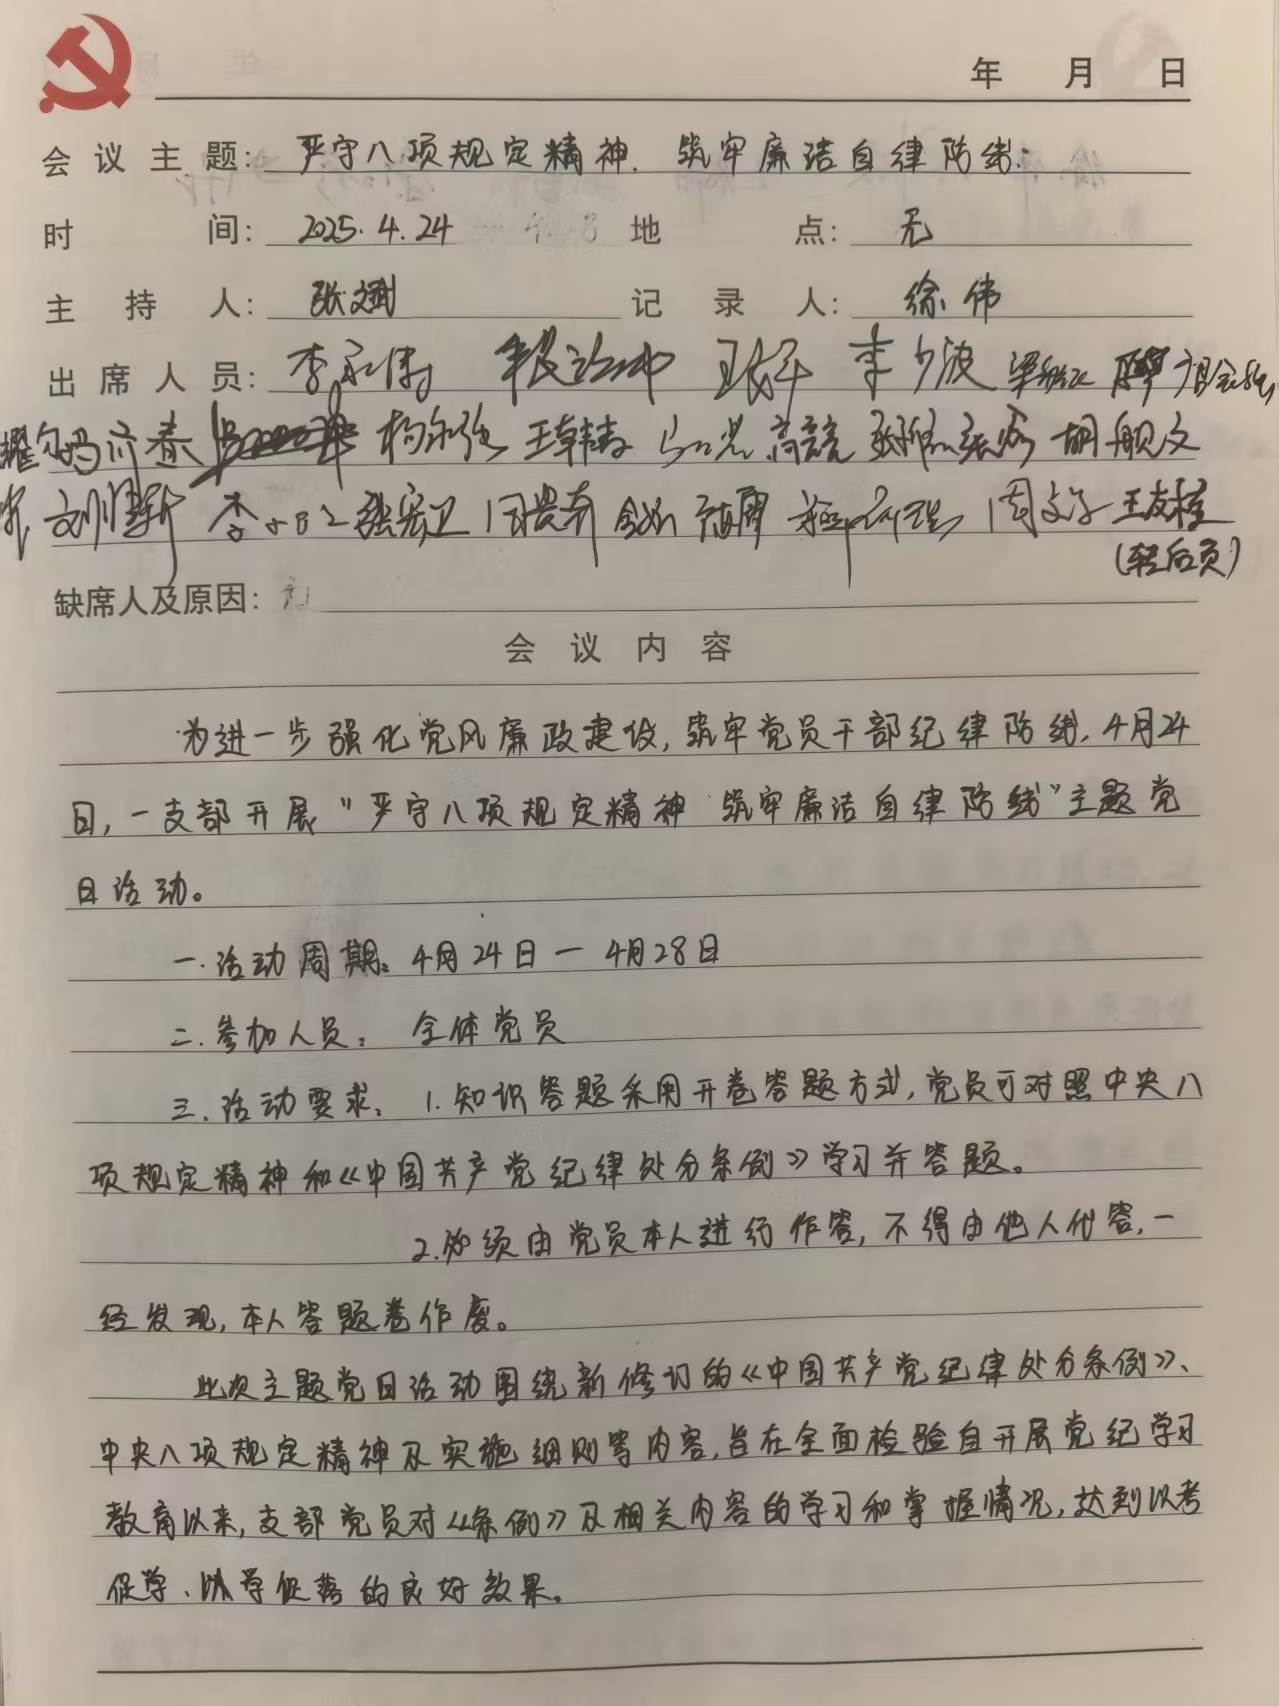 年 月 日
会议主题: 严守八项规定精神. 筑牢廉洁自律防线.
时间: 2025.4.24 地点: 无
主持人: 张文斌 记录人: 徐伟
出席人员: 李永伟 李少波
杨永强 王韩靖 高亮 胡舰文
刘建新 张宏卫 闫贵荣 周文 王友桂
(转后页)
缺席人及原因: 无
会议内容
为进一步强化党风廉政建设, 筑牢党员干部纪律防线, 4月24
日, 一支部开展"严守八项规定精神 筑牢廉洁自律防线"主题党
日活动。
一.活动周期: 4月24日一4月28日
二.参加人员: 全体党员
三.活动要求: 1.知识答题采用开卷答题方式, 党员可对照中央八
项规定精神和《中国共产党纪律处分条例》学习并答题。
2.必须由党员本人进行作答, 不得由他人代答, 一
经发现, 本人答题卷作废。
此次主题党日活动围绕新修订的《中国共产党纪律处分条例》、
中央八项规定精神及实施细则等内容, 旨在全面检验自开展党纪学习
教育以来, 支部党员对《条例》及相关内容的学习和掌握情况, 达到以考
促学、以学促落的良好效果。